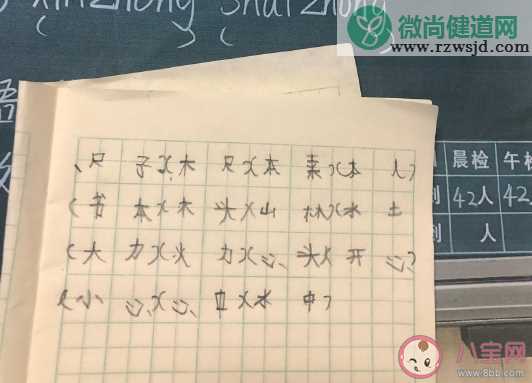 xinzhong shuizhong
微尚健道网
www.rzwsjd.com
语
晨检 午检
到 42人 42
到 人
、只 子)(木 只)(本 果)(本 人)
(书 本)(木 头)(山 林)(水 土
(大 力)(火 力)(心 头)( 开 心)
(小 心)(心 中)(水 中)
八宝网
www.8bb.com